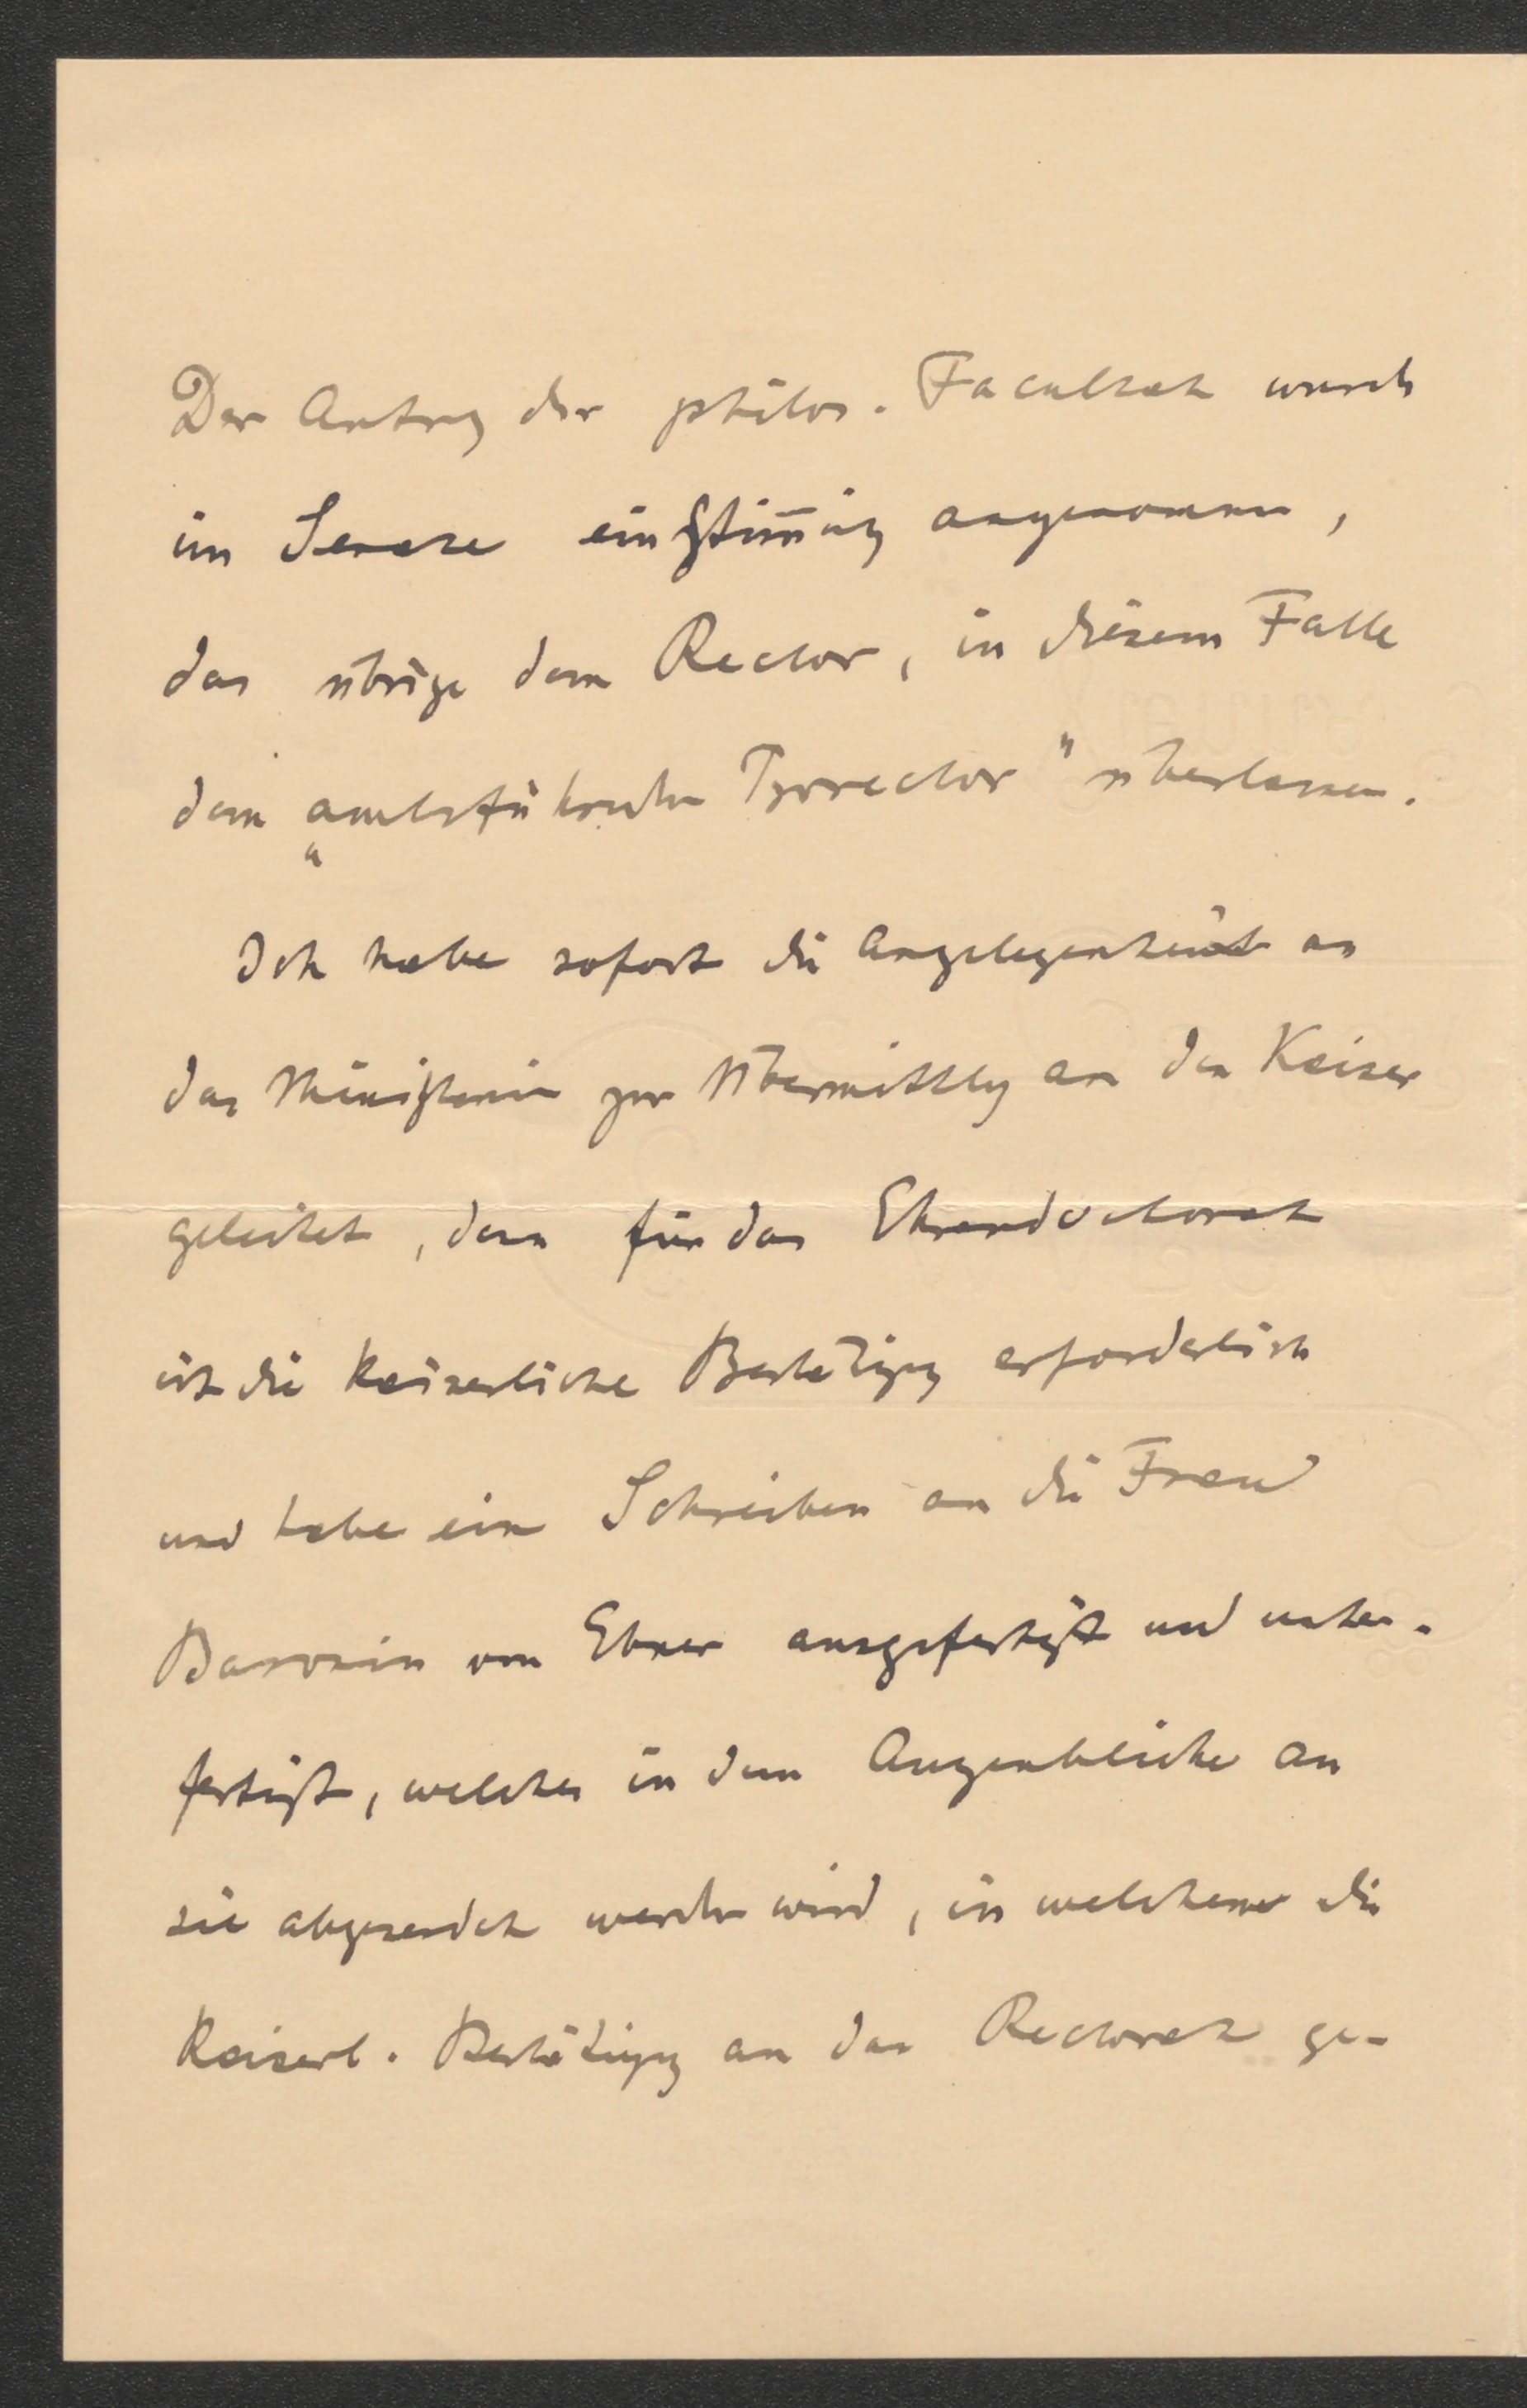 Der Antrag der philos. Facultaet wurde
im Senate einstim̅ig angenommen,
das übrige dem Rector, in diesem Falle
dem „amtsführenden Prorector" überlassen.
Ich habe sofort die Angelegenheit an
das Ministerium zur Übermittlung an den Kaiser
geleitet, denn für das Ehrendoctorat
ist die kaiserliche Bestätigung erforderlich
und habe ein Schreiben an die Frau
Baronin von Ebner ausgefertigt und unter-
fertigt, welches in dem Augenblicke an
sie abgesendet werden wird, in welchem die
Kaiserl. Bestätigung an das Rectorat ge-